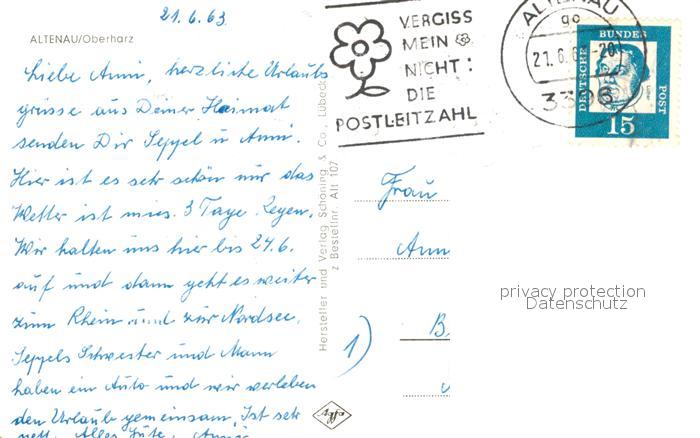 21.6.63
ALTENAU/Oberharz
Liebe Anni, herzliche Urlaubs
grüsse aus Deiner Heimat
senden Dir Seppel u Anni.
Hier ist es sehr schön nur das
Wetter ist mies. 3 Tage Regen.
Wir halten uns hier bis 24.6.
auf und dann geht es weiter
zum Rhein und zur Nordsee.
Seppels Schwester und Mann
haben ein Auto und wir verleben
den Urlaub gemeinsam. Ist sehr
nett. Alles Gute,
Hersteller und Verlag Schöning & Co., Lübeck
Bestellnr. Alt 107
VERGISS
MEIN
NICHT:
DIE
POSTLEITZAHL
ALTENAU
21.6.6 -20
3396
DEUTSCHE BUNDES POST
15
Frau
Ann
1)
B.
privacy protection
Datenschutz